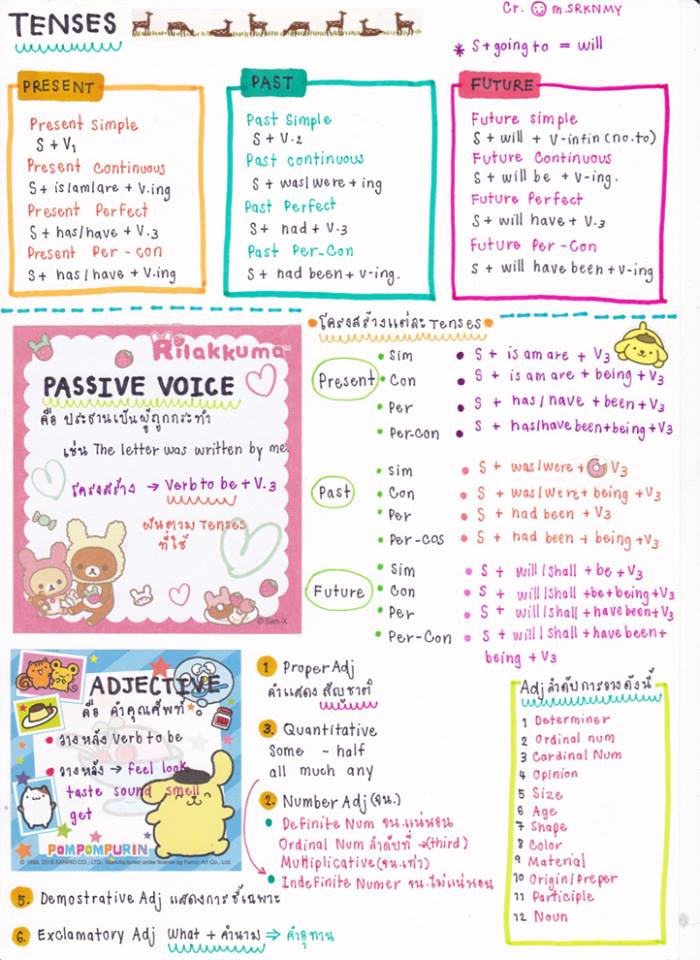 TENSES
Cr. m.SRKNMY
* S+going to = will
PRESENT
Present Simple
S + V1
Present Continuous
S+ is/am/are + V.ing
Present Perfect
S + has/have + V.3
Present Per - con
S + has / have + V.ing
PAST
Past Simple
S + V.2
Past continuous
S + was/were + ing
Past Perfect
S+ had + V.3
Past Per-Con
S + had been + v-ing.
FUTURE
Future simple
S + will + V-infin (no.to)
Future Continuous
S + will be + V-ing.
Future Perfect
S + will have + V.3
Future Per-Con
S + will have been + v-ing
Rilakkuma
PASSIVE VOICE
คือ ประธานเป็นผู้ถูกกระทำ
เช่น The letter was written by me.
โครงสร้าง → Verb to be + V.3
ผันตาม Tenses
ที่ใช้
©San-X
โครงสร้างแต่ละ Tenses
Present
Sim
S + is am are + V3
Con
S + is am are + being + V3
Per
S + has / have + been + V3
Per-Con
S + has/have been+being+V3
Past
Sim
S + was/were + V3
Con
S + was/were + being + V3
Per
S + had been + V3
Per-cos
S + had been + being + V3
Future
Sim
S + will/shall + be + V3
Con
S + will/shall +be+being+V3
Per
S + will/shall + have been+V3
Per-Con
S + will/shall + have been+
being + V3
ADJECTIVE
คือ คำคุณศัพท์
วางหลัง Verb to be
วางหลัง → feel look
taste sound smell
get
POMPOMPURIN
1 Proper Adj
คำแสดง สัญชาติ
3. Quantitative
Some - half
all much any
2. Number Adj (จน.)
Definite Num จน.แน่นอน
Ordinal Num ลำดับที่ →(third)
Multiplicative (จน.เท่า)
Indefinite Numer จน.ไม่แน่นอน
5. Demostrative Adj แสดงการชี้เฉพาะ
6. Exclamatory Adj What + คำนาม ⇒ คำอุทาน
Adj ลำดับการวางดังนี้
1 Determiner
2 Ordinal num
3 Cardinal Num
4 Opinion
5 Size
6 Age
7 Shape
8 Color
9 Material
10 Origin/Preper
11 Participle
12 Noun